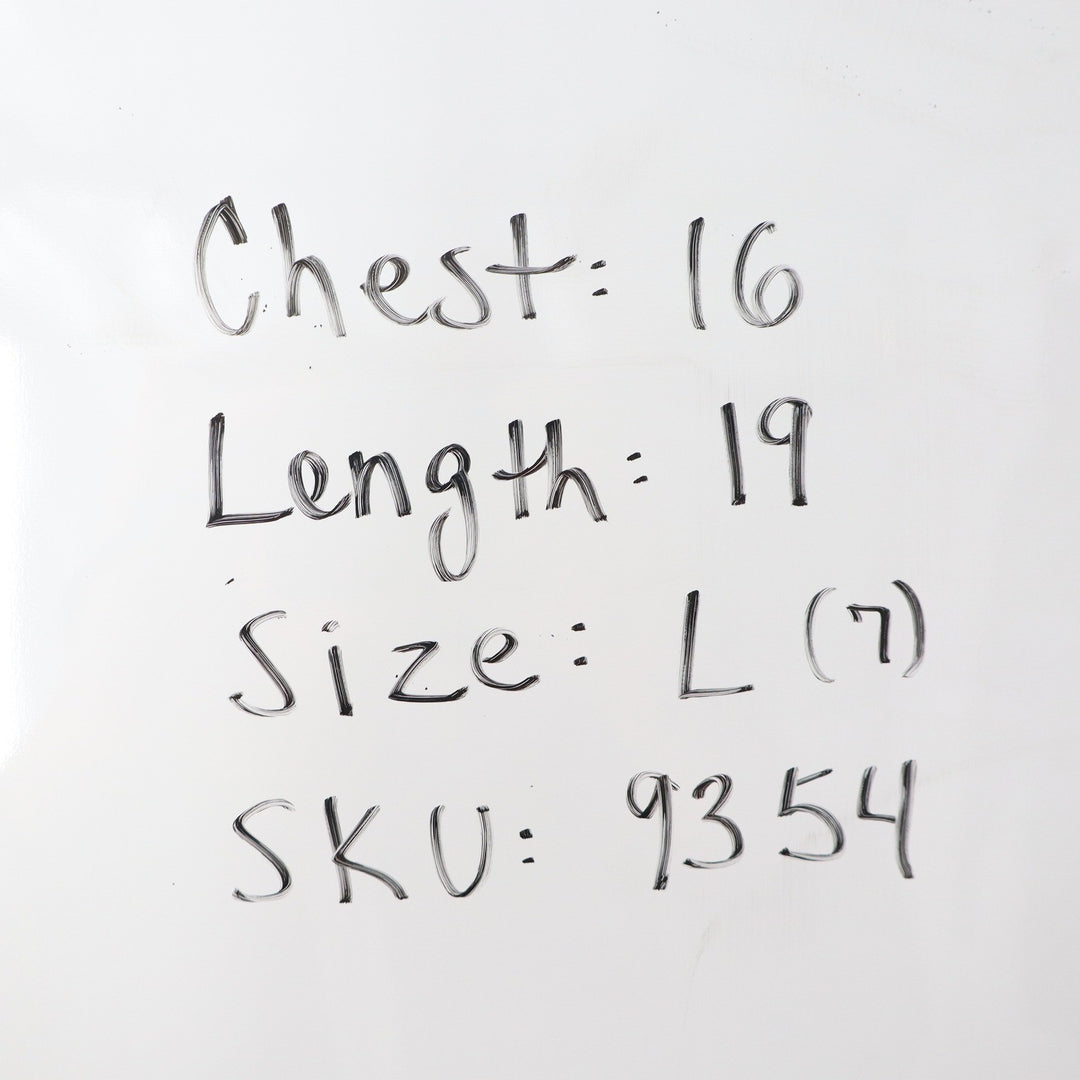 Chest: 16
Length: 19
Size: L (7)
SKU: 9354